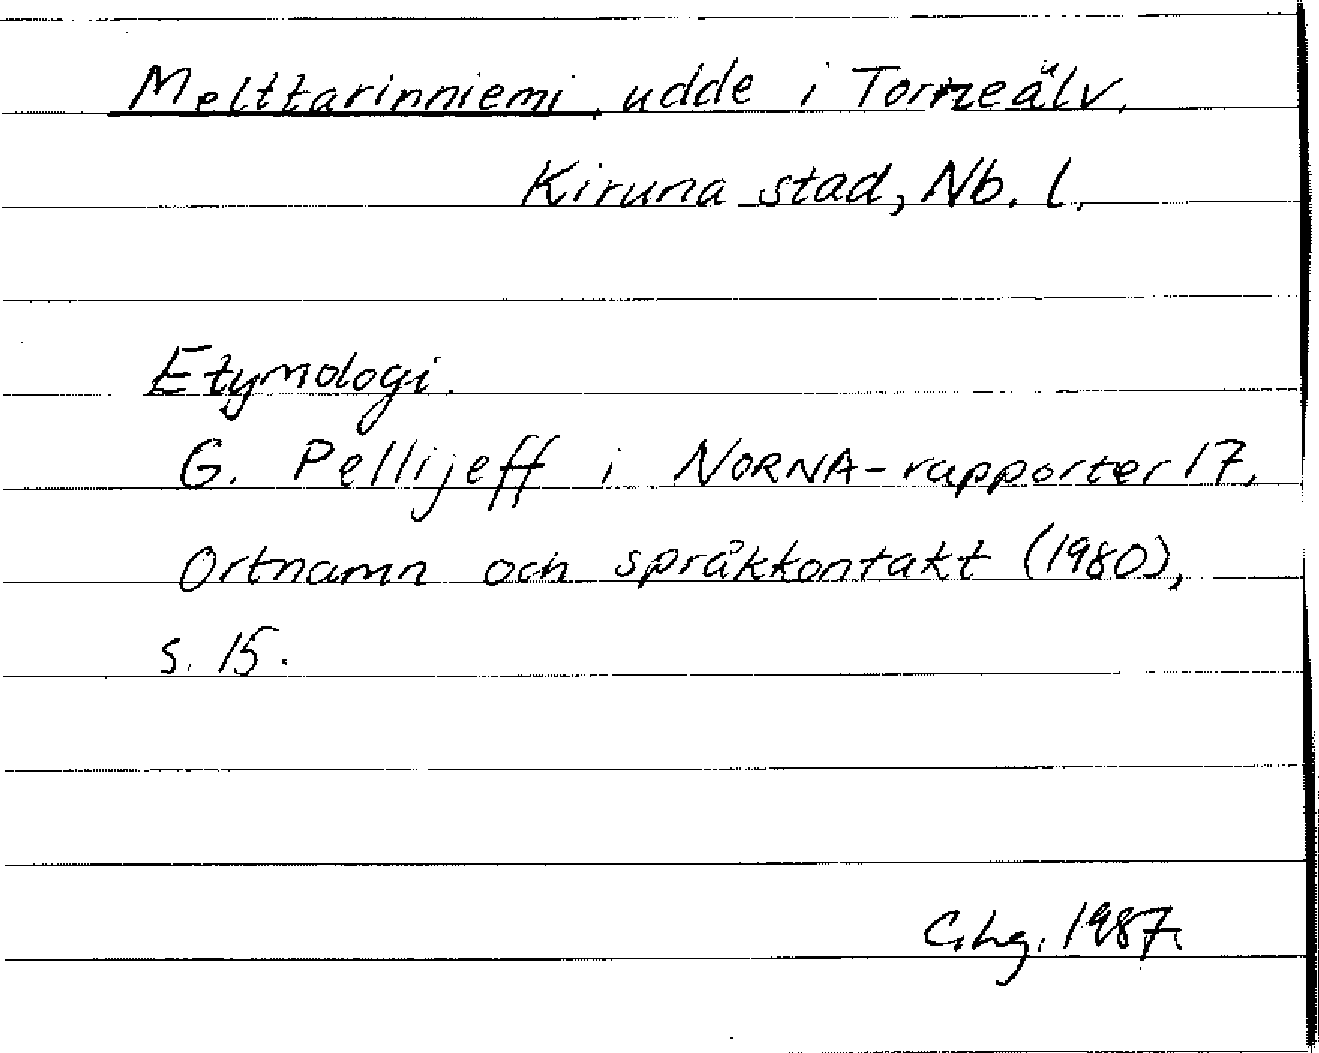 Melttarinniemi, udde i Torneälv,
Kiruna stad, Nb. l.
Etymologi.
G. Pellijeff i NORNA-rapporter 17,
Ortnamn och språkkontakt (1980),
s. 15.
C.hg. 1987.